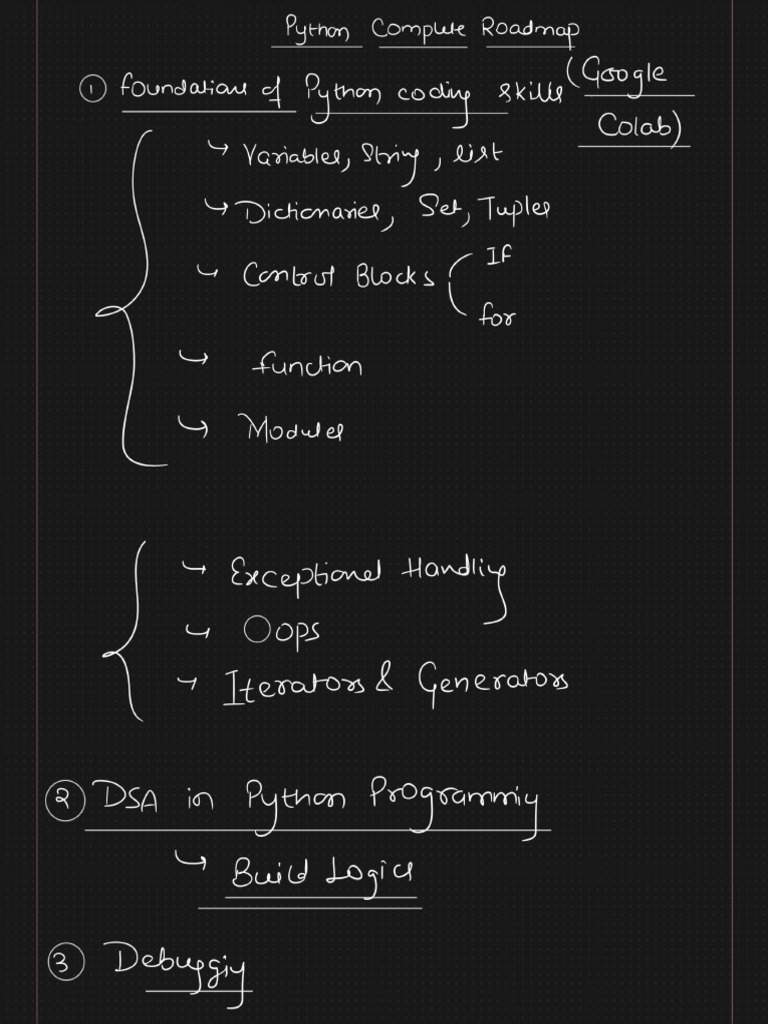 Python Complete Roadmap
① Foundations of Python coding skills (Google Colab)
↳ Variables, String, list
↳ Dictionaries, Set, Tuples
↳ Control Blocks
If
for
↳ function
↳ Modules
↳ Exceptional Handling
↳ Oops
↳ Iterators & Generators
② DSA in Python Programming
↳ Build Logics
③ Debugging